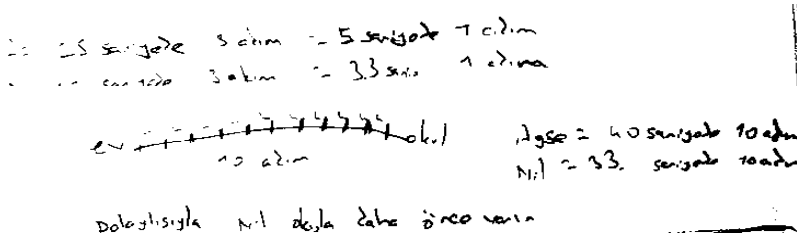 15 saniyede 3 adım = 5 saniyede 1 adım
saniyede 3 adım = 3.3 saniye 1 adıma
ev okul
10 adım
Ayşe = 40 saniyede 10 adım
Nil = 33. saniyede 10 adım
Dolayısıyla Nil okula daha önce varır